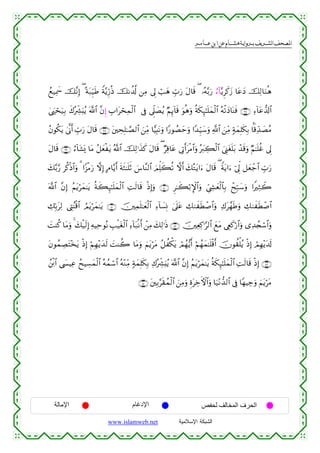 المصحف الشريف برواية هشام عن ابن عامر
هُنَالِكَ دَعَا زَكَرِيَّآءُ رَبَّهُۥ ۖ قَالَ رَبِّ هَبْ لِى مِن لَّدُنكَ ذُرِّيَّةً طَيِّبَةً ۖ إِنَّكَ سَمِيعُ
ٱلدُّعَآءِ ۝ فَنَادَتْهُ ٱلْمَلَٰٓئِكَةُ وَهُوَ قَآئِمٌ يُصَلِّى فِى ٱلْمِحْرَابِ إِنَّ ٱللَّهَ يُبَشِّرُكَ بِيَحْيَىٰ
مُصَدِّقًا بِكَلِمَةٍ مِّنَ ٱللَّهِ وَسَيِّدًا وَحَصُورًا وَنَبِيًّا مِّنَ ٱلصَّٰلِحِينَ ۝ قَالَ رَبِّ أَنَّىٰ يَكُونُ
لِى غُلَٰمٌ وَقَدْ بَلَغَنِىَ ٱلْكِبَرُ وَٱمْرَأَتِى عَاقِرٌ ۖ قَالَ كَذَٰلِكَ ٱللَّهُ يَفْعَلُ مَا يَشَآءُ ۝ قَالَ
رَبِّ ٱجْعَل لِّىٓ ءَايَةً ۖ قَالَ ءَايَتُكَ أَلَّا تُكَلِّمَ ٱلنَّاسَ ثَلَٰثَةَ أَيَّامٍ إِلَّا رَمْزًا ۗ وَٱذْكُر رَّبَّكَ
كَثِيرًا وَسَبِّحْ بِٱلْعَشِىِّ وَٱلْإِبْكَٰرِ ۝ وَإِذْ قَالَتِ ٱلْمَلَٰٓئِكَةُ يَٰمَرْيَمُ إِنَّ ٱللَّهَ
ٱصْطَفَىٰكِ وَطَهَّرَكِ وَٱصْطَفَىٰكِ عَلَىٰ نِسَآءِ ٱلْعَٰلَمِينَ ۝ يَٰمَرْيَمُ ٱقْنُتِى لِرَبِّكِ
وَٱسْجُدِى وَٱرْكَعِى مَعَ ٱلرَّٰكِعِينَ ۝ ذَٰلِكَ مِنْ أَنۢبَآءِ ٱلْغَيْبِ نُوحِيهِ إِلَيْكَ ۚ وَمَا كُنتَ
لَدَيْهِمْ إِذْ يُلْقُونَ أَقْلَٰمَهُمْ أَيُّهُمْ يَكْفُلُ مَرْيَمَ وَمَا كُنتَ لَدَيْهِمْ إِذْ يَخْتَصِمُونَ
۝ إِذْ قَالَتِ ٱلْمَلَٰٓئِكَةُ يَٰمَرْيَمُ إِنَّ ٱللَّهَ يُبَشِّرُكِ بِكَلِمَةٍ مِّنْهُ ٱسْمُهُ ٱلْمَسِيحُ عِيسَى ٱبْنُ
مَرْيَمَ وَجِيهًا فِى ٱلدُّنْيَا وَٱلْءَاخِرَةِ وَمِنَ ٱلْمُقَرَّبِينَ ۝
الحرف المخالف لحفص الإدغام الإمالة
الشبكة الاسلامية www.islamweb.net